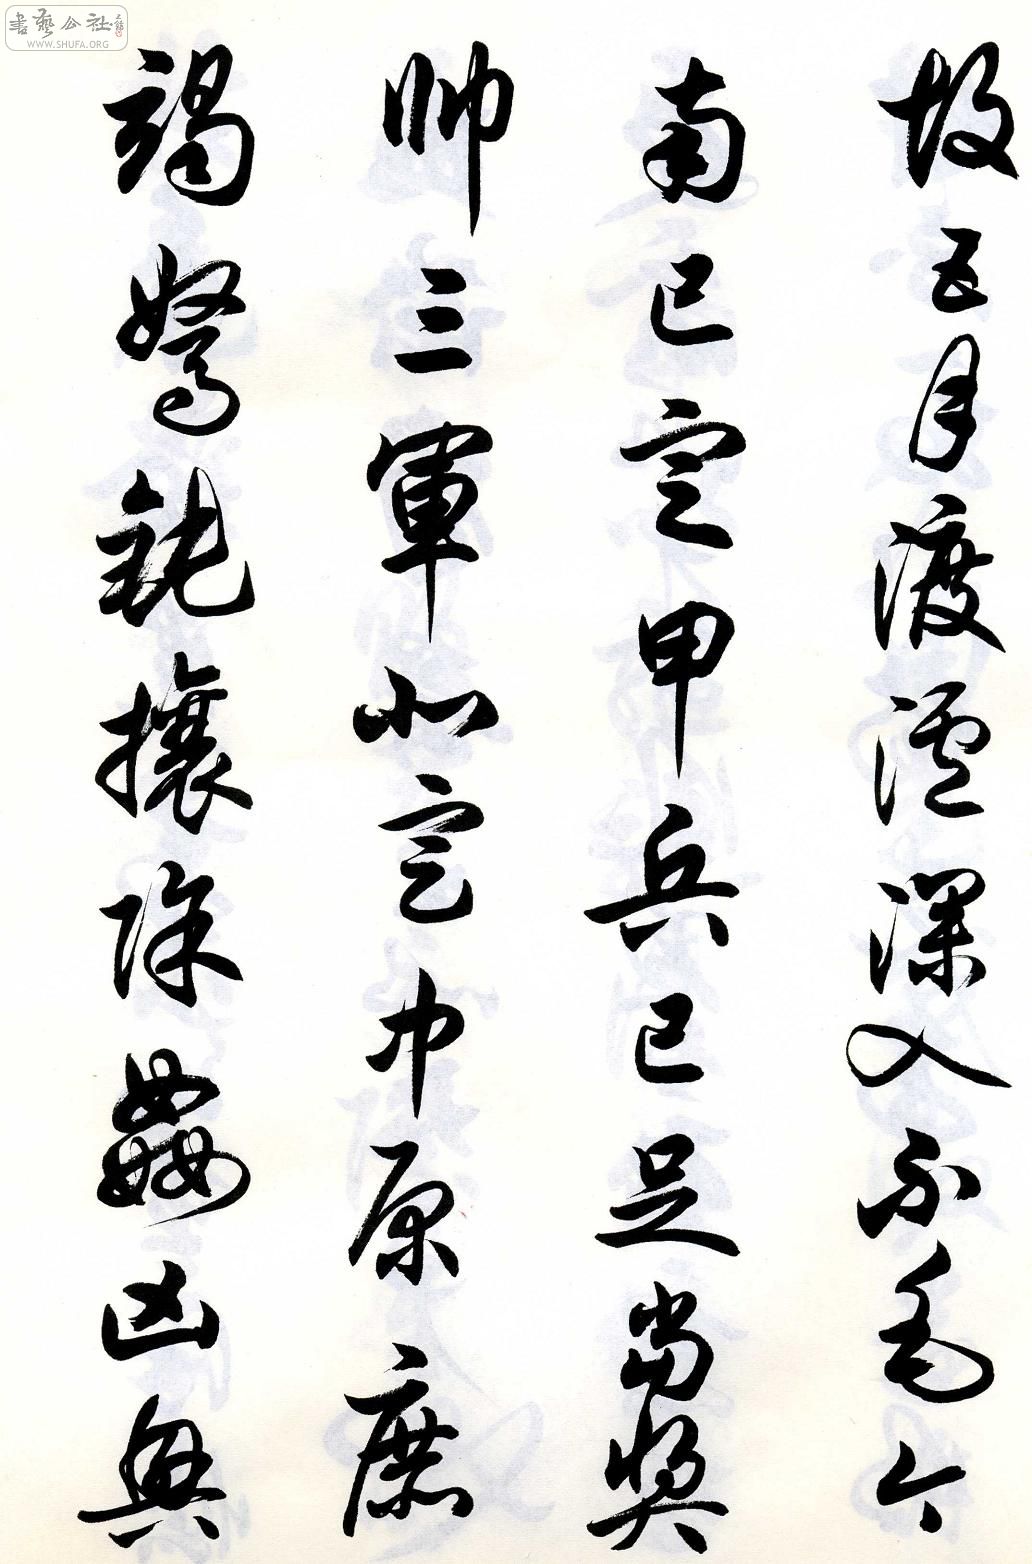 故五月渡泸深入不毛今
南已定甲兵已足当奖
帅三軍北定中原庶
竭驽钝攘除姦凶興
書藝公社
WWW.SHUFA.ORG